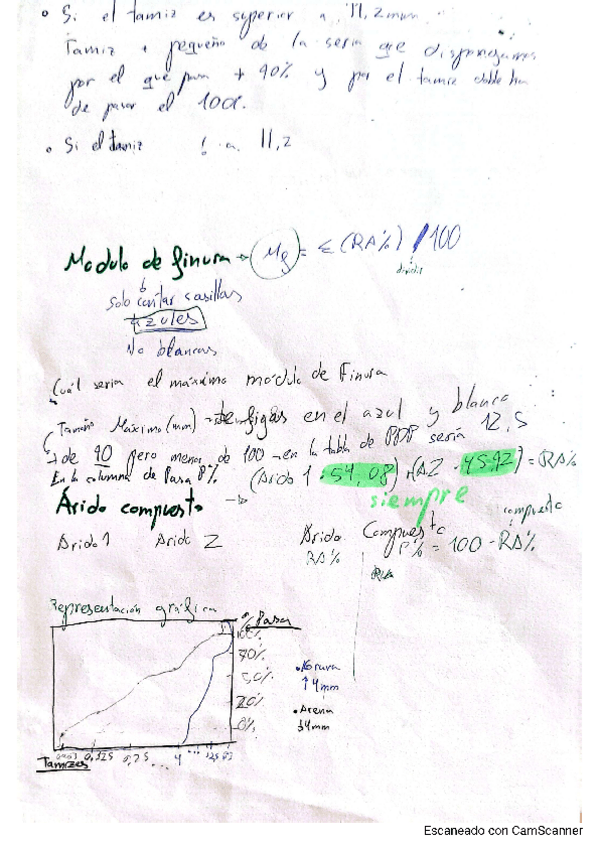 • Si el tamiz es superior a 11,2mm
Tamiz + pequeño de la serie que dispongamos
por el que pasa + 90% y por el tamiz doble ha
de pasar el 100%.
• Si el tamiz a 11,2
Modulo de finura → Mf = Σ (RA%) / 100
dividir
Solo contar casillas
azules
No blancas
Cuál seria el máximo modulo de Finura
Tamaño Maximo (mm) → te fijas en el azul y blanco
+ de 90 pero menos de 100 → en la tabla de PDF seria 12,5
En la columna de Pasa P%
(Arido 1 · 54,08) + (A2 · 45,92) = RA%
siempre
Árido compuesto →
Arido 1 Arido 2 Arido Compuesto
RA% P% = 100 - RA%
compuesto
RA
Representación gráfica
% Pasa
100%
90%
50%
20%
0%
• Grava
↑ 4mm
• Arena
↓ 4mm
0,063 0,125 0,25 ... 4 ... 12,5 63
Tamizes
Escaneado con CamScanner